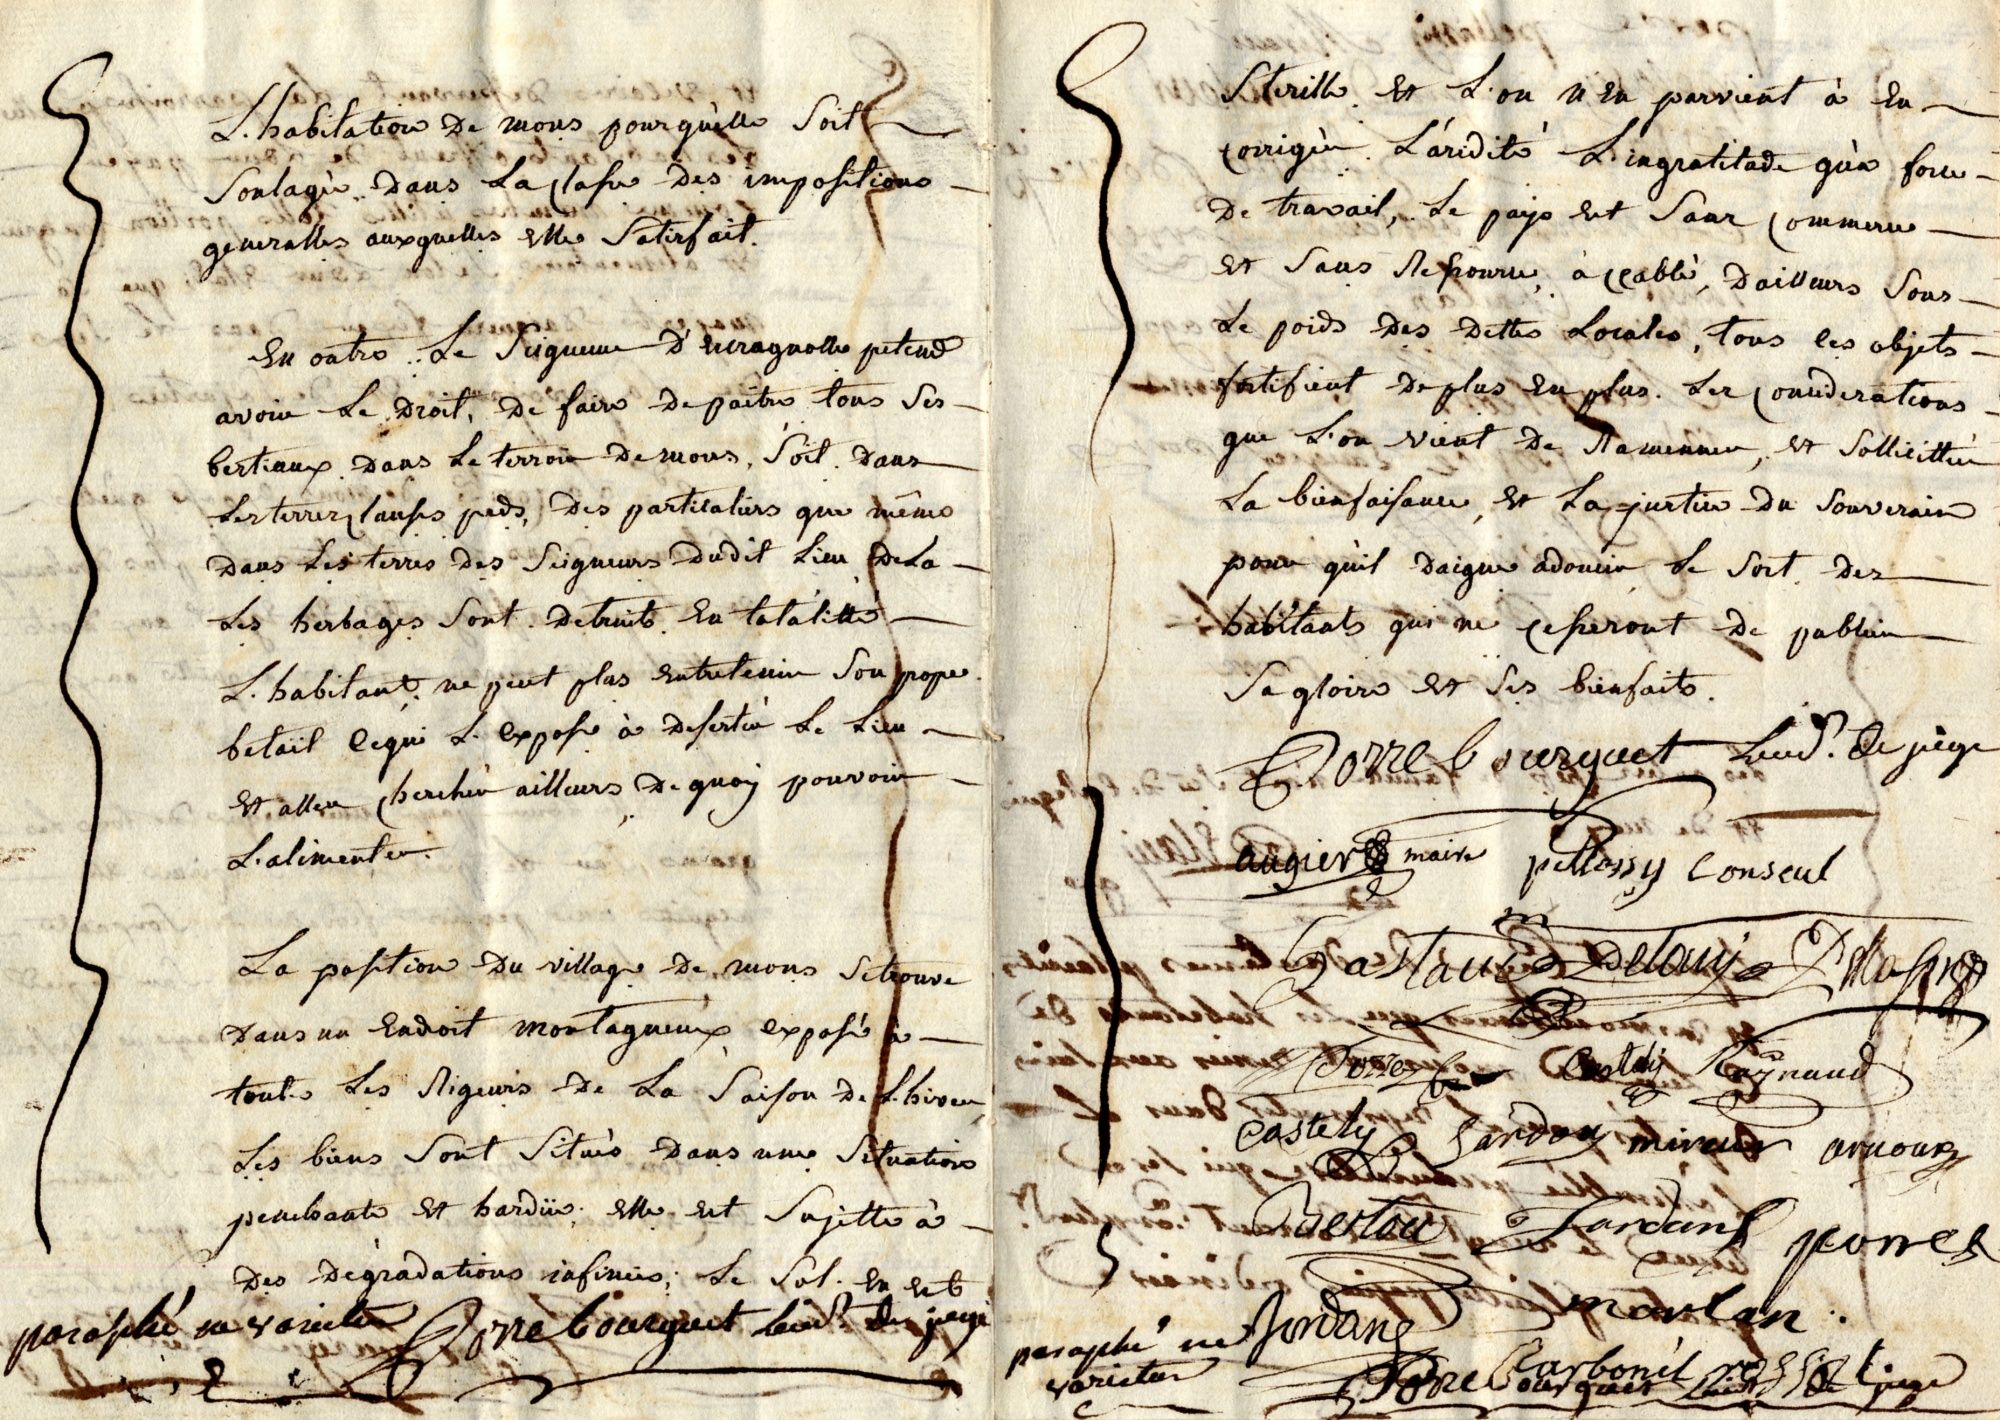 L'habitation de mons pourqu'elle soit
soulagée dans la classe des impositions
generalles auxquelles elle satisfait.
En outre le seigneur d'escragnolle petend
avoir le droit, de faire depaitre tous ses
bestiaux dans le terroir de mons, soit dans
les terres, des particuliers que même
dans les terres des seigneurs dudit lieu de la
les herbages sont detruits en totalitté
L'habitant ne peut plus entretenir son propre
betail ce qui l'expose à deserter le lieu
et aller chercher ailleurs de quoy pouvoir
l'alimenter.
La position du village de mons se trouve
dans un endroit montagneux exposé à
toutes les rigeurs de la saison de l'hiver,
les biens sont situés dans une situation
penchante et hardiie; elle est sujette à
des dégradations infinies; le sol en est
paraphé ne varietur Porre bourguet lieud.t de juge
sterille et l'on n'en parvient à en
corriger l'aridité l'ingratitude qu'à force
de travail, le pays est sans commerce
et sans ressource, accablé, d'ailleurs sous
le poids des dettes locales, tous les objets
fortifient de plus en plus les considerations
que l'on vient de ramenner, et sollicitter
la bienfaisance, et la justice du souverain
pour qu'il daigne adoucir le sort des
habitants qui ne cesseront de publier
sa gloire et ses bienfaits.
Porre bourguet lieud.t de juge
augier maire pellassy conseul
Porre Castely Raynaud
Castely Jardan mireur arnoux
Bertou Jordany porre
paraphé ne Jordany maulan
varietur
Carbonel
Porre bourguet de juge